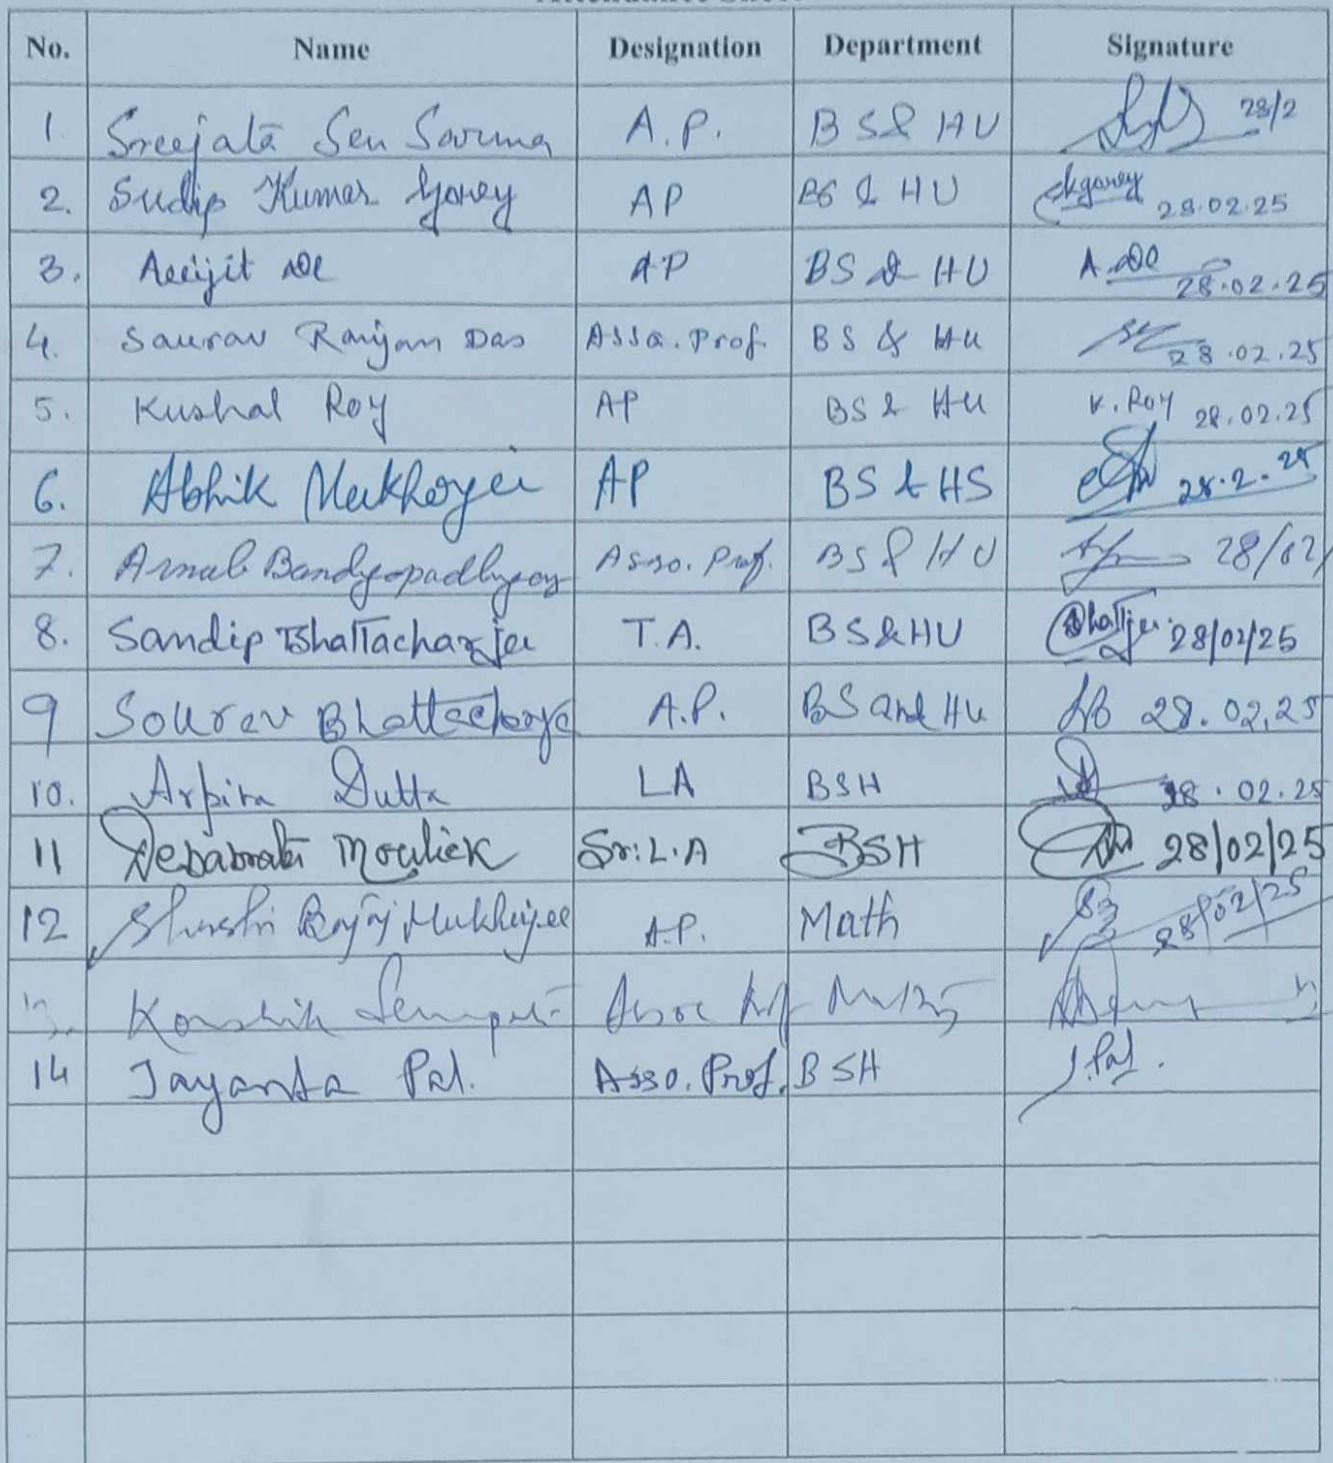 No. Name Designation Department Signature
1 Sreejata Sen Sarma A.P. BS & HU 28/2
2. Sudip Kumar Gorey AP BS & HU skgorey 28.02.25
3. Avijit De AP BS & HU A. De 28.02.25
4. Saurav Ranjan Das Asso. Prof. BS & HU 28.02.25
5. Kushal Roy AP BS & HU K. Roy 28.02.25
6. Abhik Mukherjee AP BS & HS 28.2.25
7. Arnab Bandyopadhyay Asso. Prof. BS & HU 28/02/
8. Sandip Bhattacharjee T.A. BS & HU 28/02/25
9 Sourav Bhattacharya A.P. BS and HU SB 28.02.25
10. Arpita Dutta LA BSH 28.02.25
11 Debabrata Moulick Sr. L.A BSH 28/02/25
12 Mukherjee A.P. Math 28/02/25
13. Koushik
14 Jayanta Pal. Asso. Prof. BSH J. Pal.